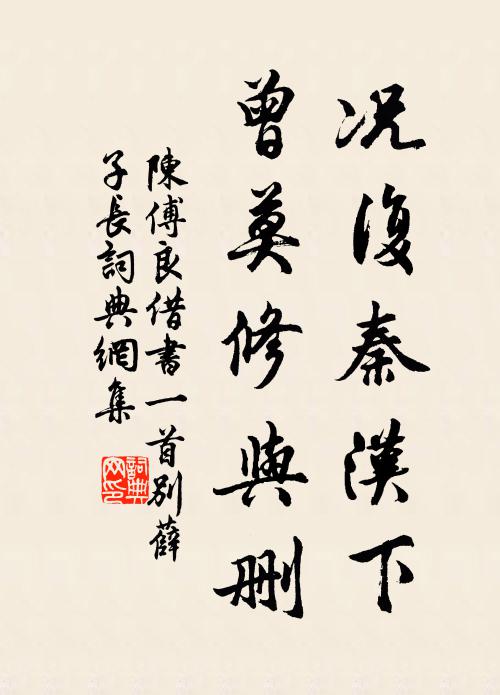 况復秦漢下
曾莫修與刪
陳傅良借書一首別薛
子長詞典網集
詞典網印